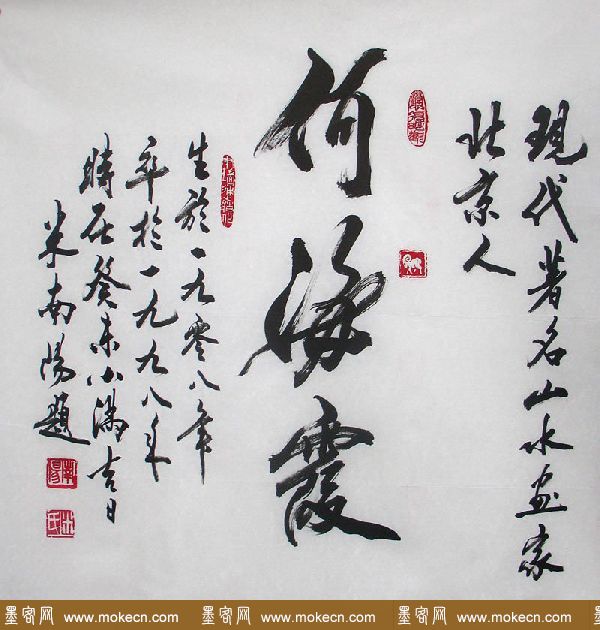 现代著名山水画家
北京人
何海霞
生於一九零八年
卒於一九九八年
時在癸未小满吉日
米南陽題
墨客网 www.mokecn.com 墨客网 www.mokecn.com 墨客网 www.mokecn.com